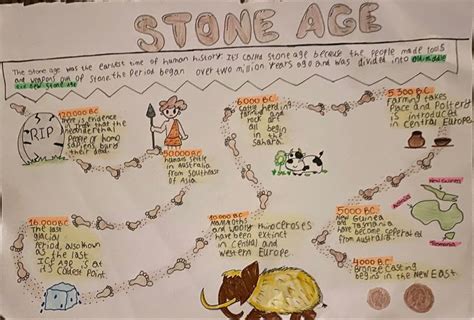 STONE AGE
The stone age was the earliest time of human history. It's called stone age because the people made tools
and weapons out of stone. the Period began over two million years ago and was divided into old, middle
and new stone age
120.000 B.C
There is evidence
that the
neanderthal
People of homo
sapiens bury
their dead.
RIP
50.000 B.C
humans settle in
Australia
from southeast
of Asia.
6.000 B.C
Cattle herding
farming and
rock art
all begin
in the
Sahara.
5 300 B.C.
Farming takes
Place and Potterie
is introduced
in Central Europe
16.000 B.C
The last
glacial
Period, also known
as the last
ICE AGE is at
it's Coldest Point.
10.000 B.C
Mammoths
and woolly rhinoceroses
have been extinct
in Central and
Western Europe.
5000 B.C
New Guinea
and Tasmania
have become seperated
from Australia.
New Guinea
Tasmania
4000 B.C
Bronze Casting
begins in the NEW EAST.